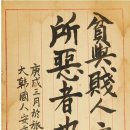 貧與賤人之
所惡者也
庚戌三月於旅
大韓国人安